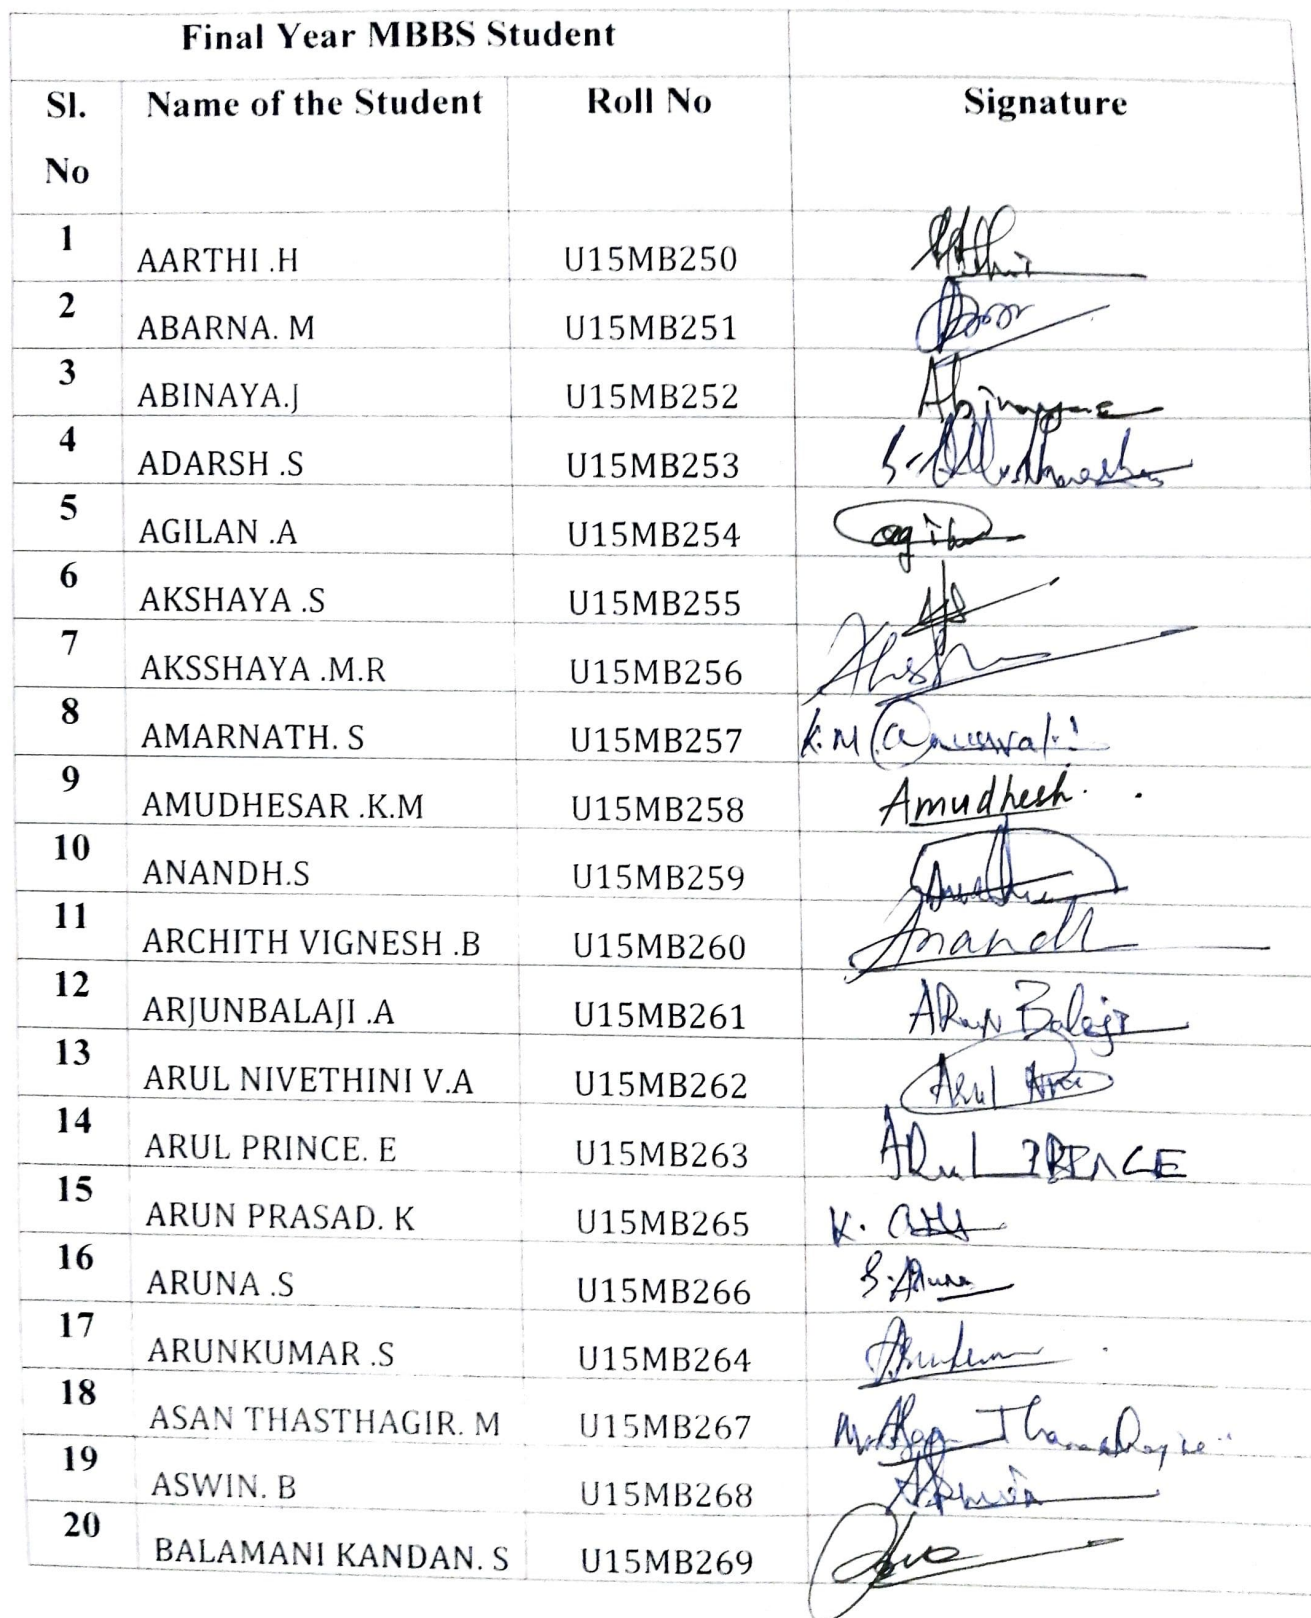 Final Year MBBS Student
Sl. No Name of the Student Roll No Signature
1 AARTHI .H U15MB250
2 ABARNA. M U15MB251
3 ABINAYA.J U15MB252 Abinaya
4 ADARSH .S U15MB253
5 AGILAN .A U15MB254
6 AKSHAYA .S U15MB255
7 AKSSHAYA .M.R U15MB256
8 AMARNATH. S U15MB257 K.M
9 AMUDHESAR .K.M U15MB258 Amudhesh.
10 ANANDH.S U15MB259
11 ARCHITH VIGNESH .B U15MB260 Anandh
12 ARJUNBALAJI .A U15MB261 Balaji
13 ARUL NIVETHINI V.A U15MB262 Arul
14 ARUL PRINCE. E U15MB263 ARul
15 ARUN PRASAD. K U15MB265 K.
16 ARUNA .S U15MB266 S. Aruna
17 ARUNKUMAR .S U15MB264
18 ASAN THASTHAGIR. M U15MB267
19 ASWIN. B U15MB268
20 BALAMANI KANDAN. S U15MB269